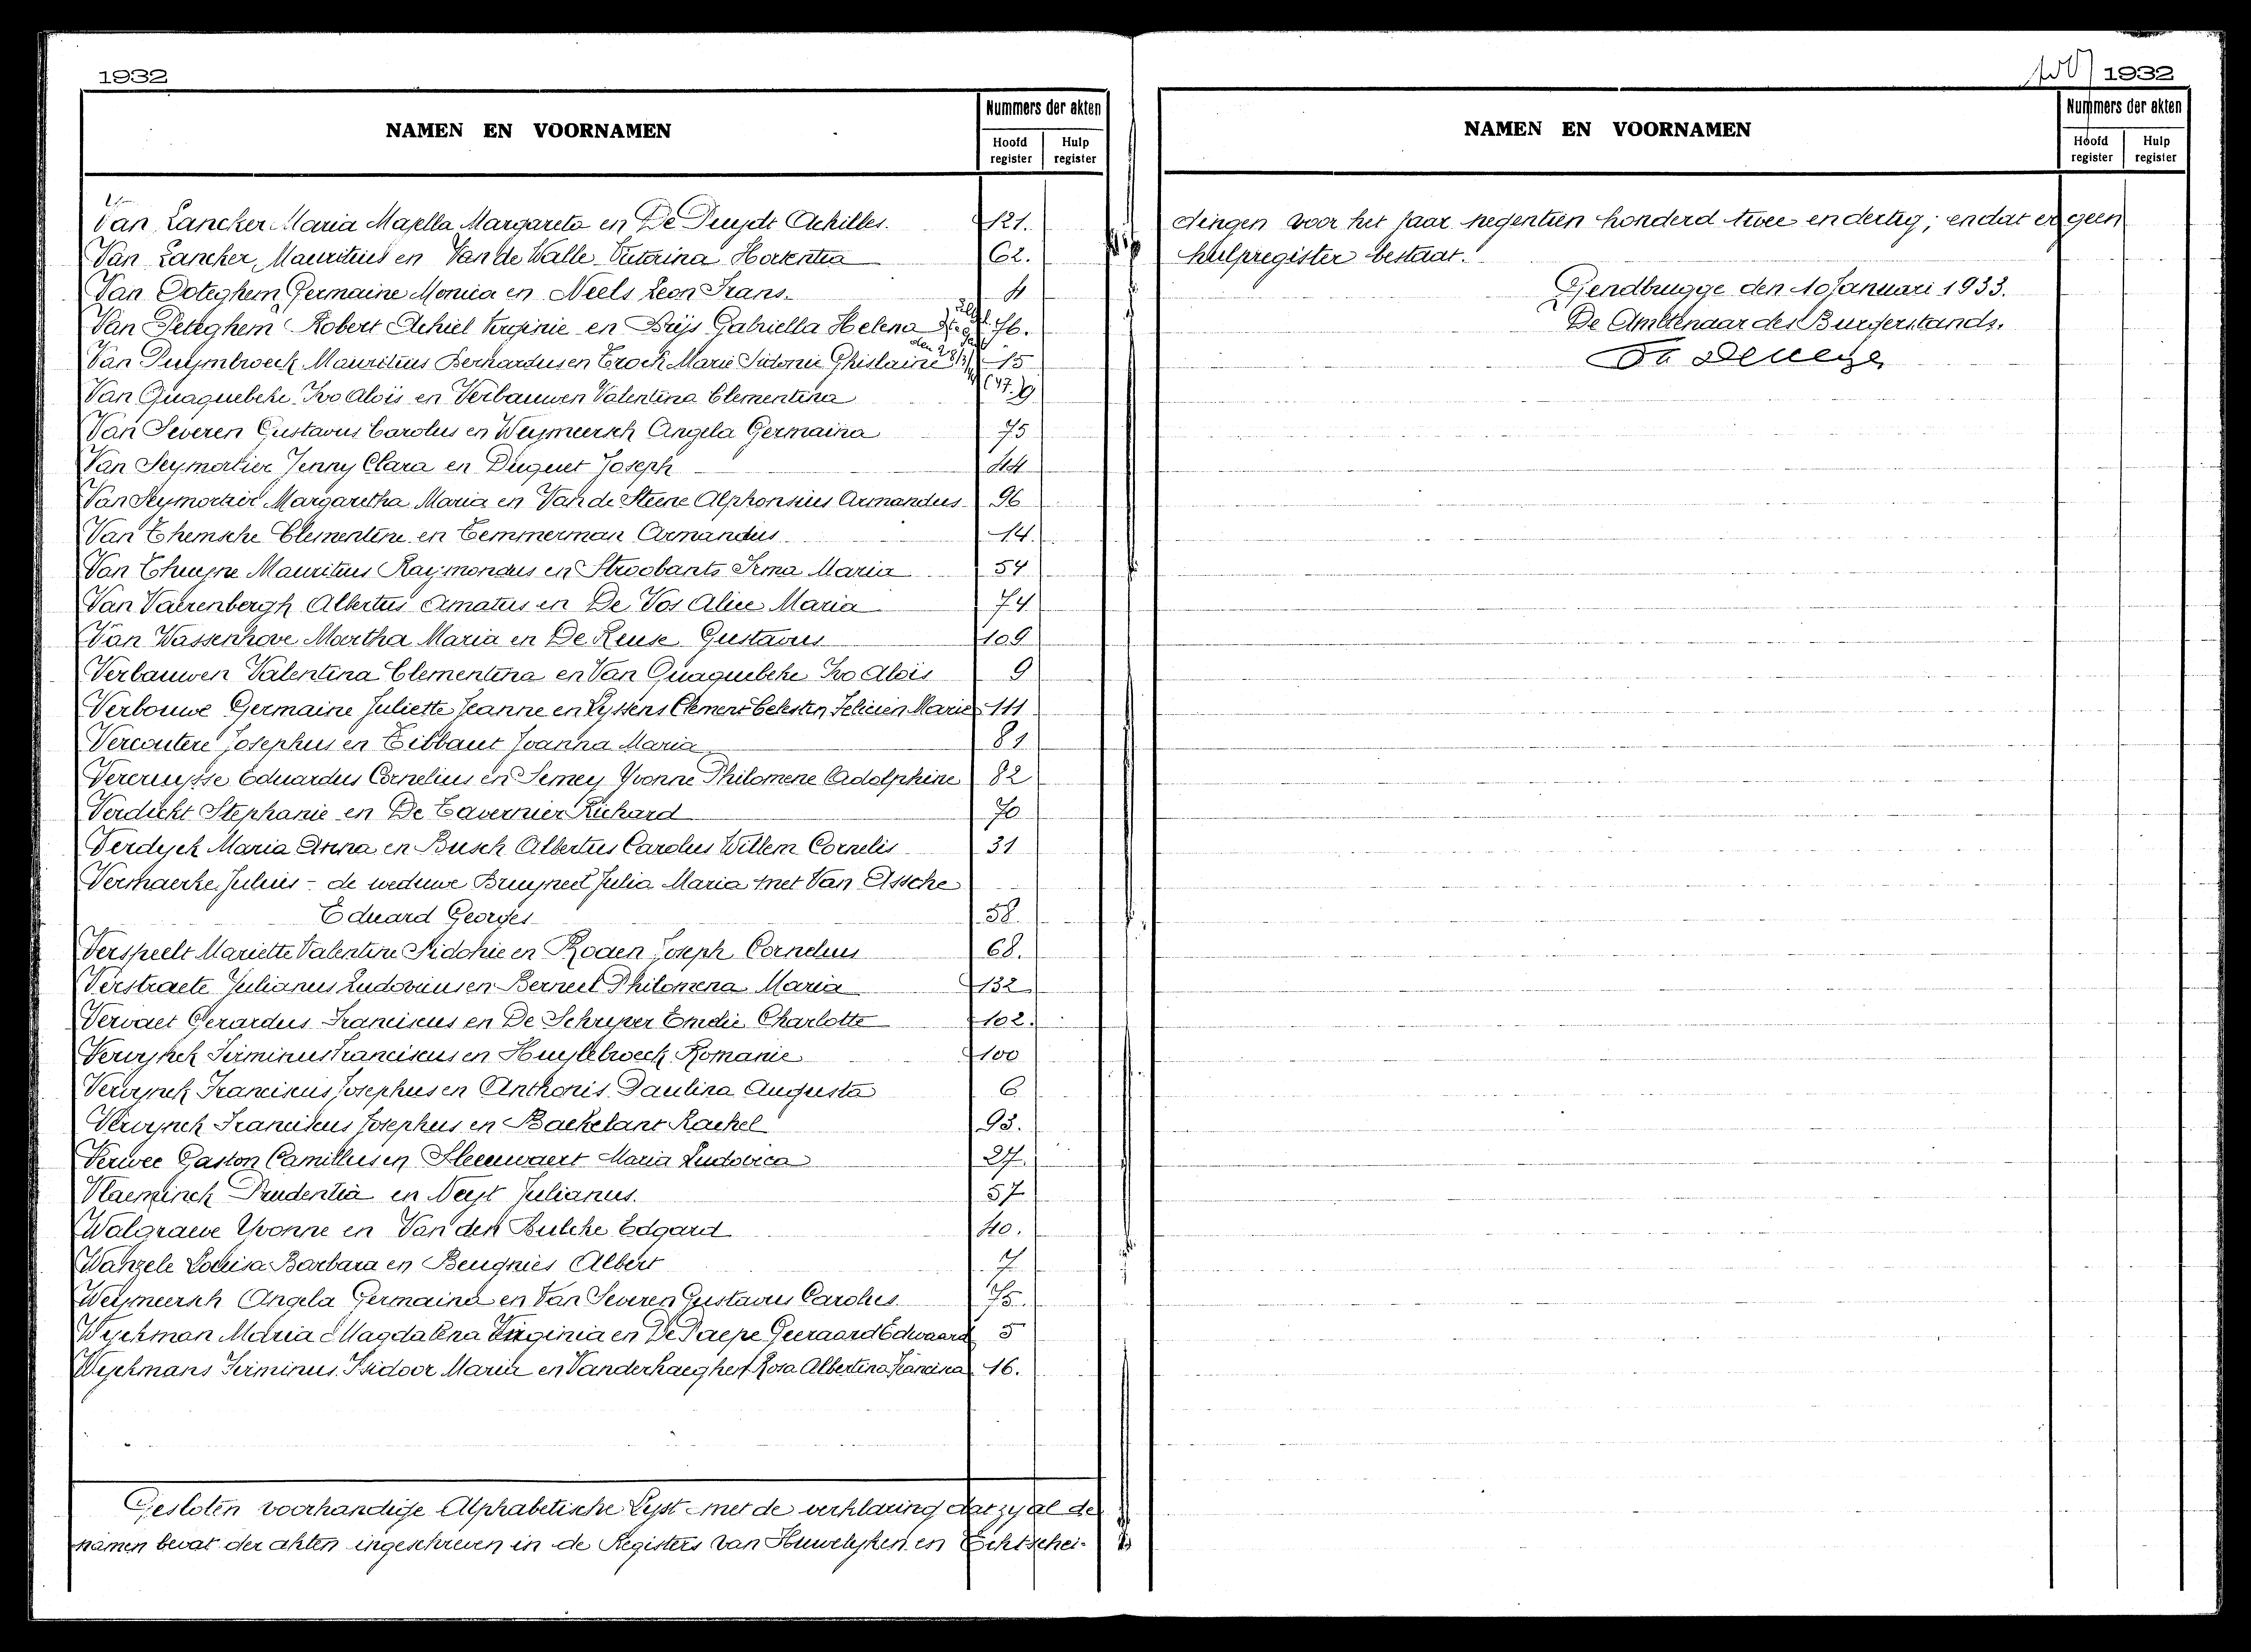 1932
NAMEN EN VOORNAMEN
Nummers der akten
Hoofd register
Hulp register
Van Lancker Maria Majella Margareta en De Duydt Achilles. 121.
Van Lancker Mauritius en Van de Walle Victorina Hortentia 62.
Van Ooteghem Germaine Monica en Neels Leon Frans. 4
Van Peteghem Robert Achiel Virginie en Buijs Gabriella Helena 76.
Van Puymbroeck Mauritius Bernardus en Crock Marie Sidonie Ghislaine 15
Van Quaquebeke Ivo Aloïs en Verbauwen Valentina Clementina 9
Van Severen Gustavus Carolus en Weymeersch Angela Germaina 75
Van Seymortier Jenny Clara en Duquet Joseph 44
Van Seymortier Margaretha Maria en Van de Steene Alphonsius Armandus 96
Van Themsche Clementine en Temmerman Armandus 14.
Van Thuyne Mauritius Raymondus en Stroobants Irma Maria 54
Van Vaerenbergh Albertus Amatus en De Vos Alice Maria 74
Van Wassenhove Martha Maria en De Reuse Gustavus 109
Verbauwen Valentina Clementina en Van Quaquebeke Ivo Aloïs 9
Verbouwe Germaine Juliette Jeanne en Lyssens Clement Celesten Felicien Marie 111
Vercoutere Josephus en Tibbaut Joanna Maria 81
Vercruysse Eduardus Cornelius en Semey Yvonne Philomene Adolphine 82
Verdickt Stephanie en De Tavernier Richard 70
Verdyck Maria Anna en Busch Albertus Carolus Willem Cornelis 31
Vermaerke Julius - de weduwe Bruyneel Julia Maria met Van Assche
Eduard Georges 58.
Verspeelt Mariette Valentine Sidonie en Rogen Joseph Cornelius 68.
Verstraete Julianus Ludovicus en Berneel Philomena Maria 132
Vervaet Gerardus Franciscus en De Schryver Emelie Charlotte 102.
Vervynck Firminus Franciscus en Huylebroeck Romanie 100
Vervynck Franciscus Josephus en Anthonis Paulina Augusta 6
Vervynck Franciscus Josephus en Baekelant Rachel 93.
Verwee Gaston Camillus en Sleeuwaert Maria Ludovica 27.
Vlaeminck Prudentia en Neyt Julianus. 57
Walgraeve Yvonne en Van den Bulcke Edgard 40.
Wanzele Louisa Barbara en Beugnies Albert 7
Weymeersch Angela Germaina en Van Severen Gustavus Carolus 75.
Wyckman Maria Magdalena Virginia en De Paepe Geeraard Edwaard 5
Wyckmans Firminus Isidoor Maria en Vanderhaeghen Rosa Albertina Francina 16.
Gesloten voorhandige Alphabetische Lyst met de verklaring dat zy al de
namen bevat der akten ingeschreven in de Registers van Huwelyken en Echtschei-
1932
NAMEN EN VOORNAMEN
Nummers der akten
Hoofd register
Hulp register
dingen voor het jaar negentien honderd twee en dertig; en dat er geen
hulpregister bestaat.
Gendbrugge den 10 Januari 1933.
De Ambtenaar des Burgerstands.